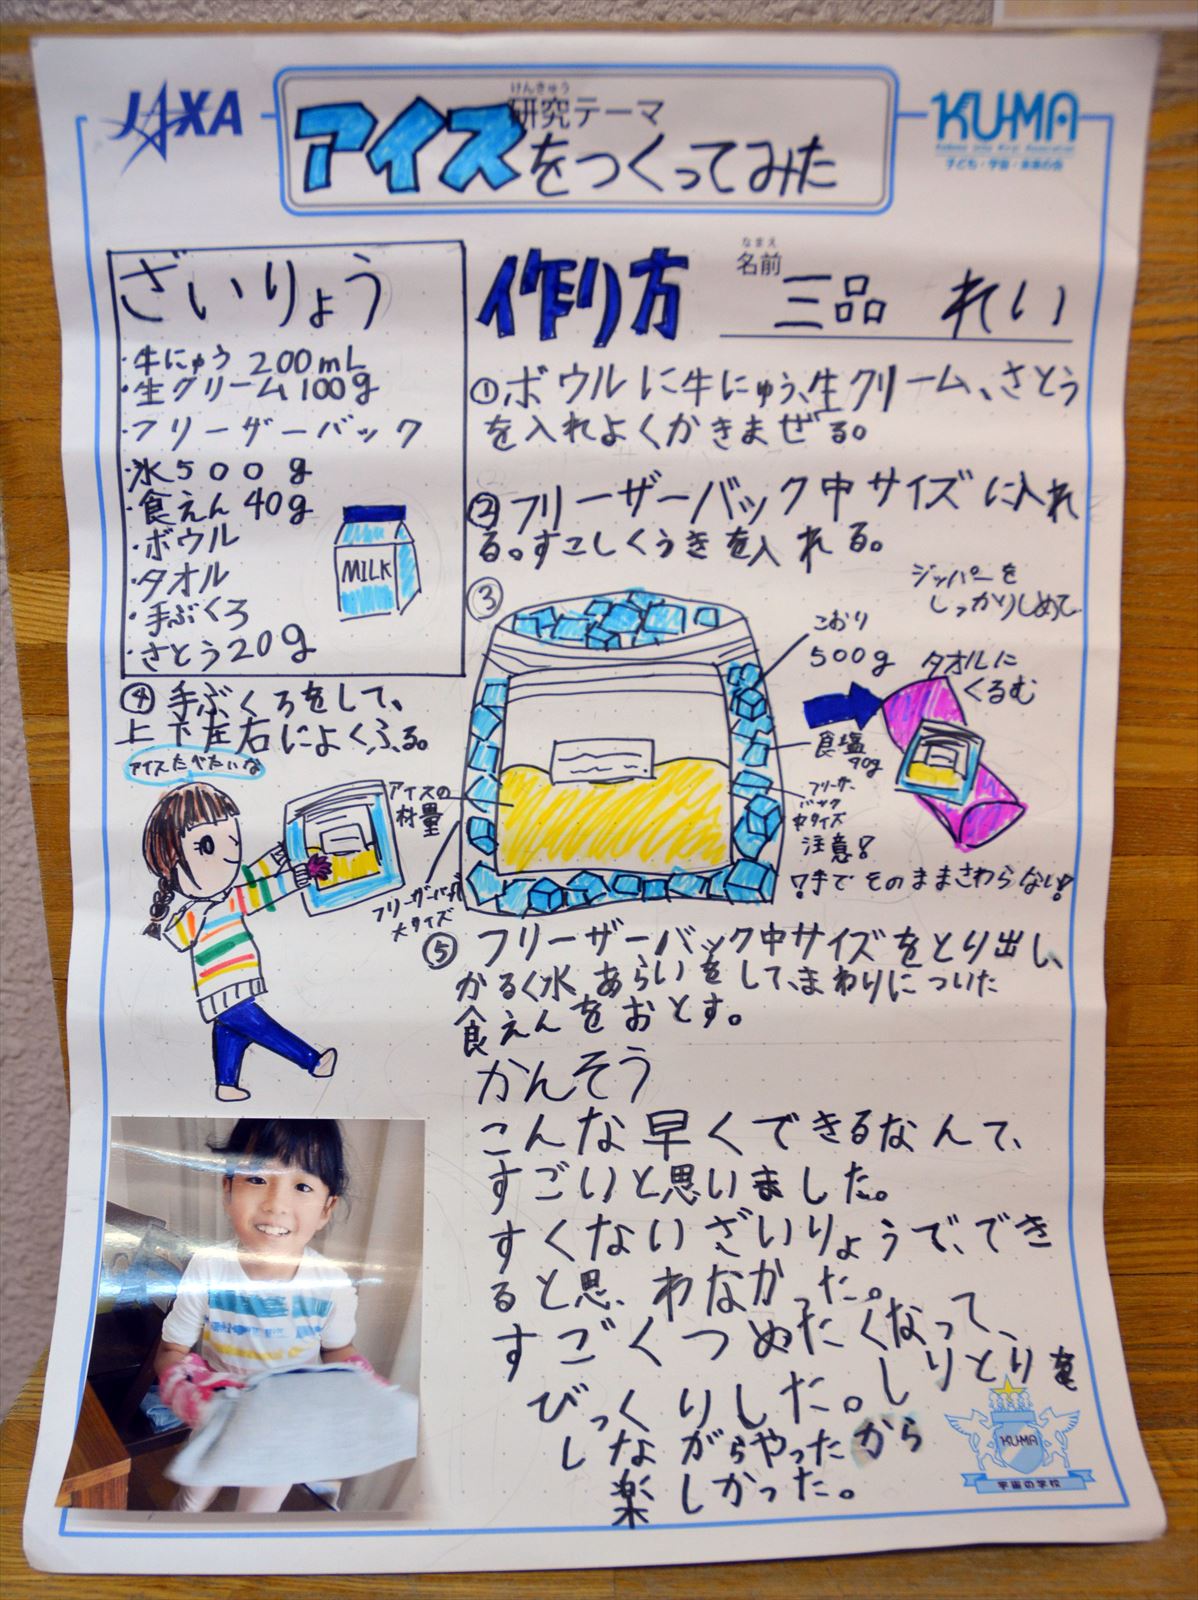 JAXA
けんきゅう
研究テーマ
アイスをつくってみた
KU-MA
子ども・宇宙・未来の会
ざいりょう
・牛にゅう 200mL
・生クリーム100g
・フリーザーバック
・氷500g
・食えん40g
・ボウル
・タオル
・手ぶくろ
・さとう20g
MILK
作り方
なまえ
名前
三品 れい
①ボウルに牛にゅう、生クリーム、さとう
を入れよくかきまぜる。
②フリーザーバック中サイズに入れ
る。すこしくうきを入れる。
③
ジッパーを
しっかりしめて
こおり
500g
タオルに
くるむ
食塩
40g
フリーザー
バック
中サイズ
注意!
手でそのままさわらない!
アイスの
材量
フリーザーバック
大サイズ
④手ぶくろをして、
上下左右によくふる。
アイスたべたいな
⑤フリーザーバック中サイズをとり出し、
かるく水あらいをして、まわりについた
食えんをおとす。
かんそう
こんな早くできるなんて、
すごいと思いました。
すくないざいりょうで、でき
ると思わなかった。
すごくつめたくなって、
びっくりした。しりとりを
しながらやったから
楽しかった。
KU-MA
宇宙の学校